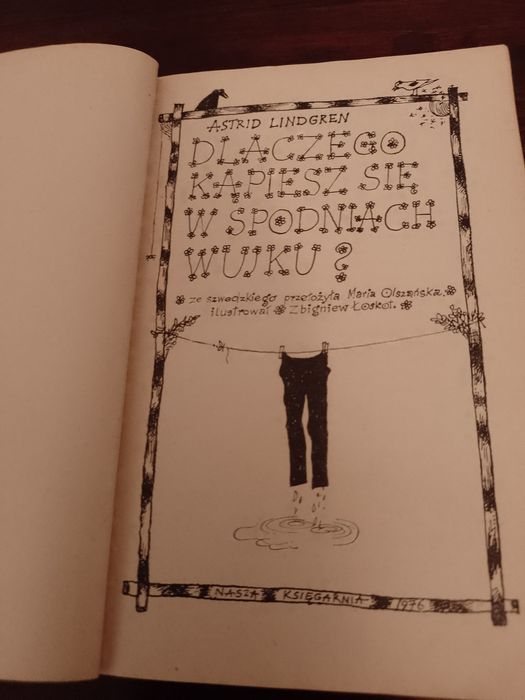 ASTRID LINDGREN
DLACZEGO
KĄPIESZ SIĘ
W SPODNIACH
WUJKU?
ze szwedzkiego przełożyła Maria Olszańska
ilustrował Zbigniew Łoskot
NASZA KSIĘGARNIA 1976